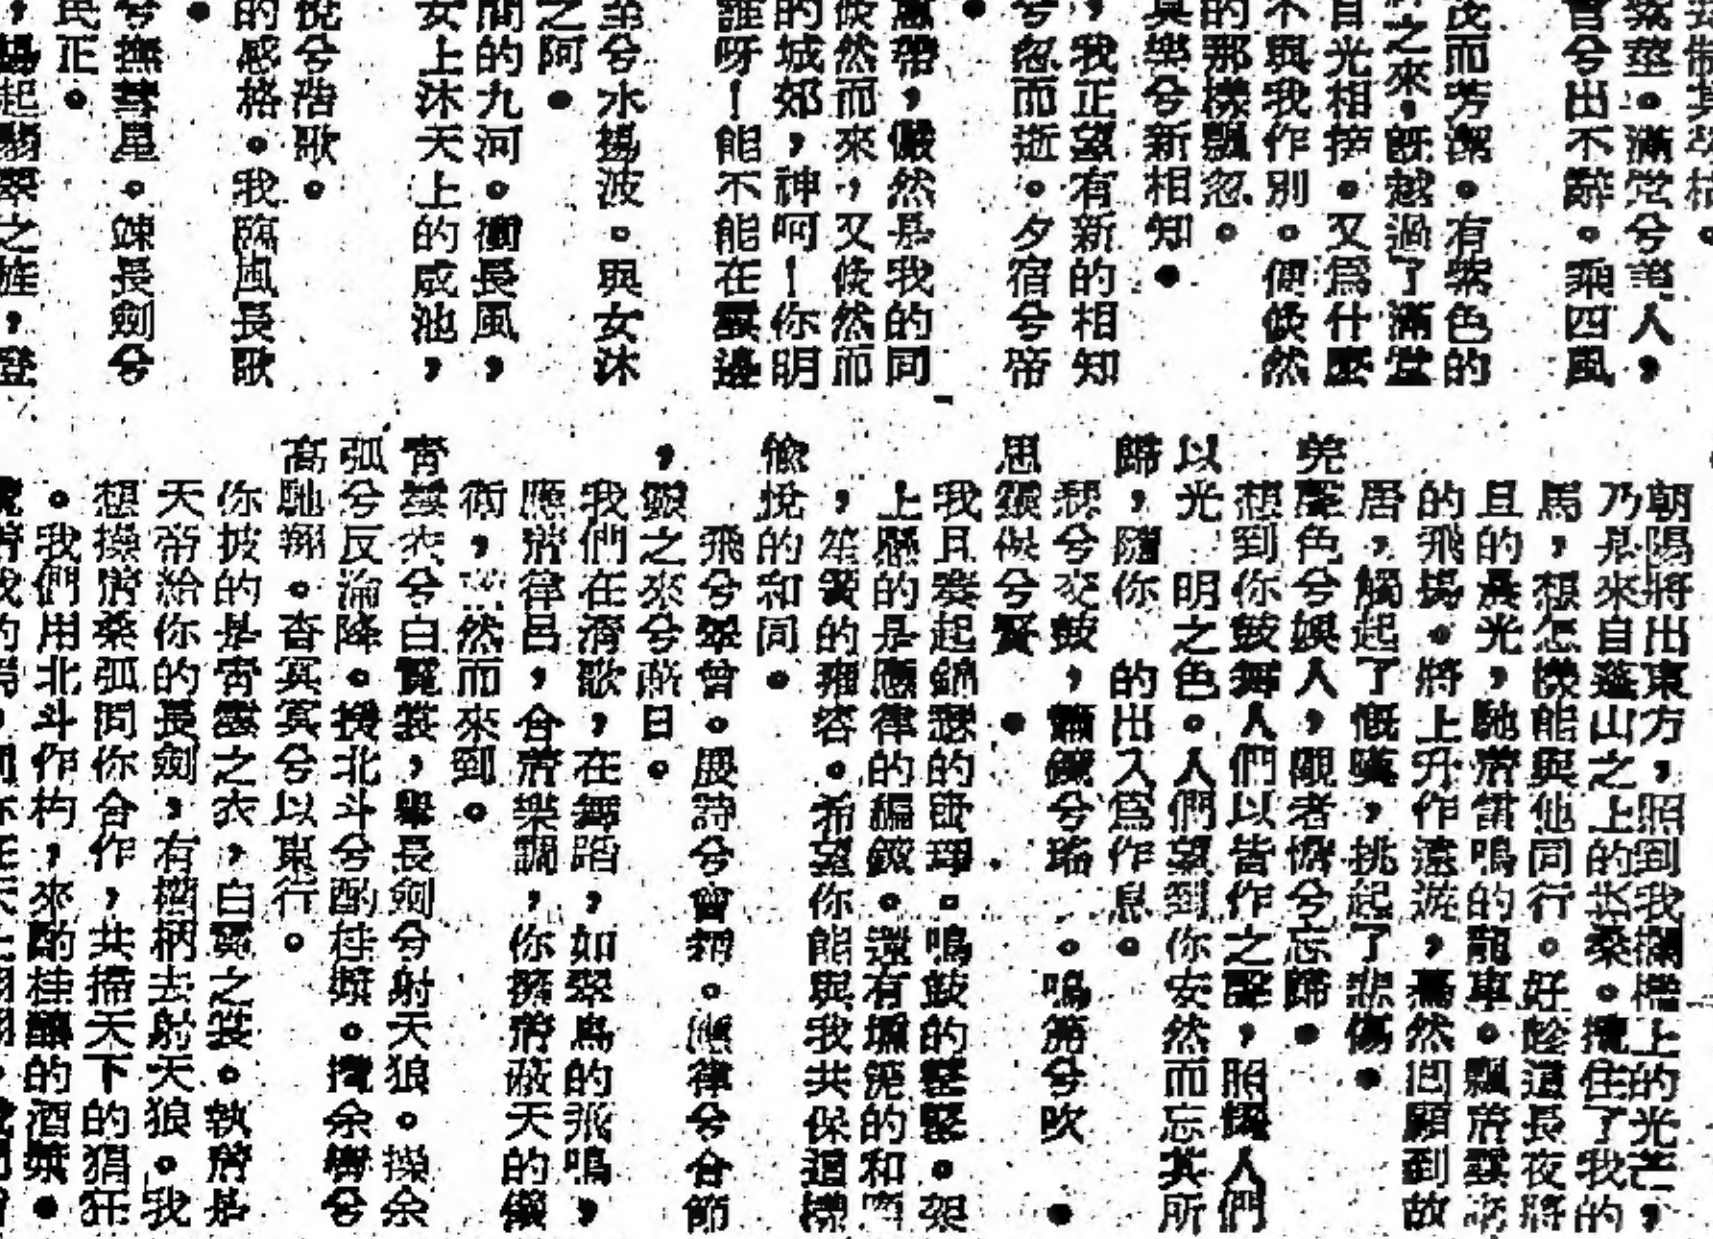 紫莖。滿堂兮美人，
兮出不辭。乘四風
茂而芳潔。有紫色的
之來，既越過了滿堂
目光相接。又爲什麼
不與我作別。便倏然
的那樣飄忽。
莫樂兮新相知。
，我正望有新的相知
兮忽而逝。夕宿兮帝
蕙帶，儼然是我的同
倏然而來，又倏然而
的城郊，神呵！你明
誰呀！能不能在雲邊
至兮水揚波。與女沐
之阿。
間的九河。衝長風，
女上沐天上的咸池，
怳兮浩歌。
的感格。我臨風長歌
兮撫彗星。竦長劍兮
民正。
，揚起翡翠之旌，登
朝陽將出東方，照到我欄檻上的光芒，
乃是來自蓬山之上的扶桑。攬住了我的
馬，想怎樣能與他同行。好趁這長夜將
且的晨光，馳着雷鳴的龍車。飄着雲
的飛揚。將上升作遠游，驀然囘顧到故
居，觸起了慨嘆，挑起了悲傷。
羌聲色兮娛人，觀者憺兮忘歸。
想到你鼓舞人們以皆作之聲，照耀人們
以光明之色。人們望到你安然而忘其所
歸，隨你的出入爲作息。
兮交鼓，簫鐘兮瑤。鳴兮吹。
思靈保兮賢。
我且奏起錦瑟的。鳴鼓的。架
上懸的是應律的編鐘。還有壎箎的和鳴
，笙簧的雍容。希望你能與我共保這樣
愉悅的和同。
飛兮翠曾。展詩兮會舞。應律兮合節
，靈之來兮蔽日。
我們在清歌，在舞蹈，如翠鳥的飛鳴，
應着律呂，合着樂調，你擁着蔽天的儀
衛，然而來到。
靑雲衣兮白霓裳，舉長劍兮射天狼。操余
弧兮反淪降。援北斗兮酌桂漿。攬余轡兮
高馳翔。杳冥冥兮以東行。
你披的是靑雲之衣，白霓之裳。執着是
天帝給你的長劍，有權柄去射天狼。我
想操着桑弧同你合作，共掃天下的猖狂
。我們用北斗作杓，來酌桂釀的酒漿。